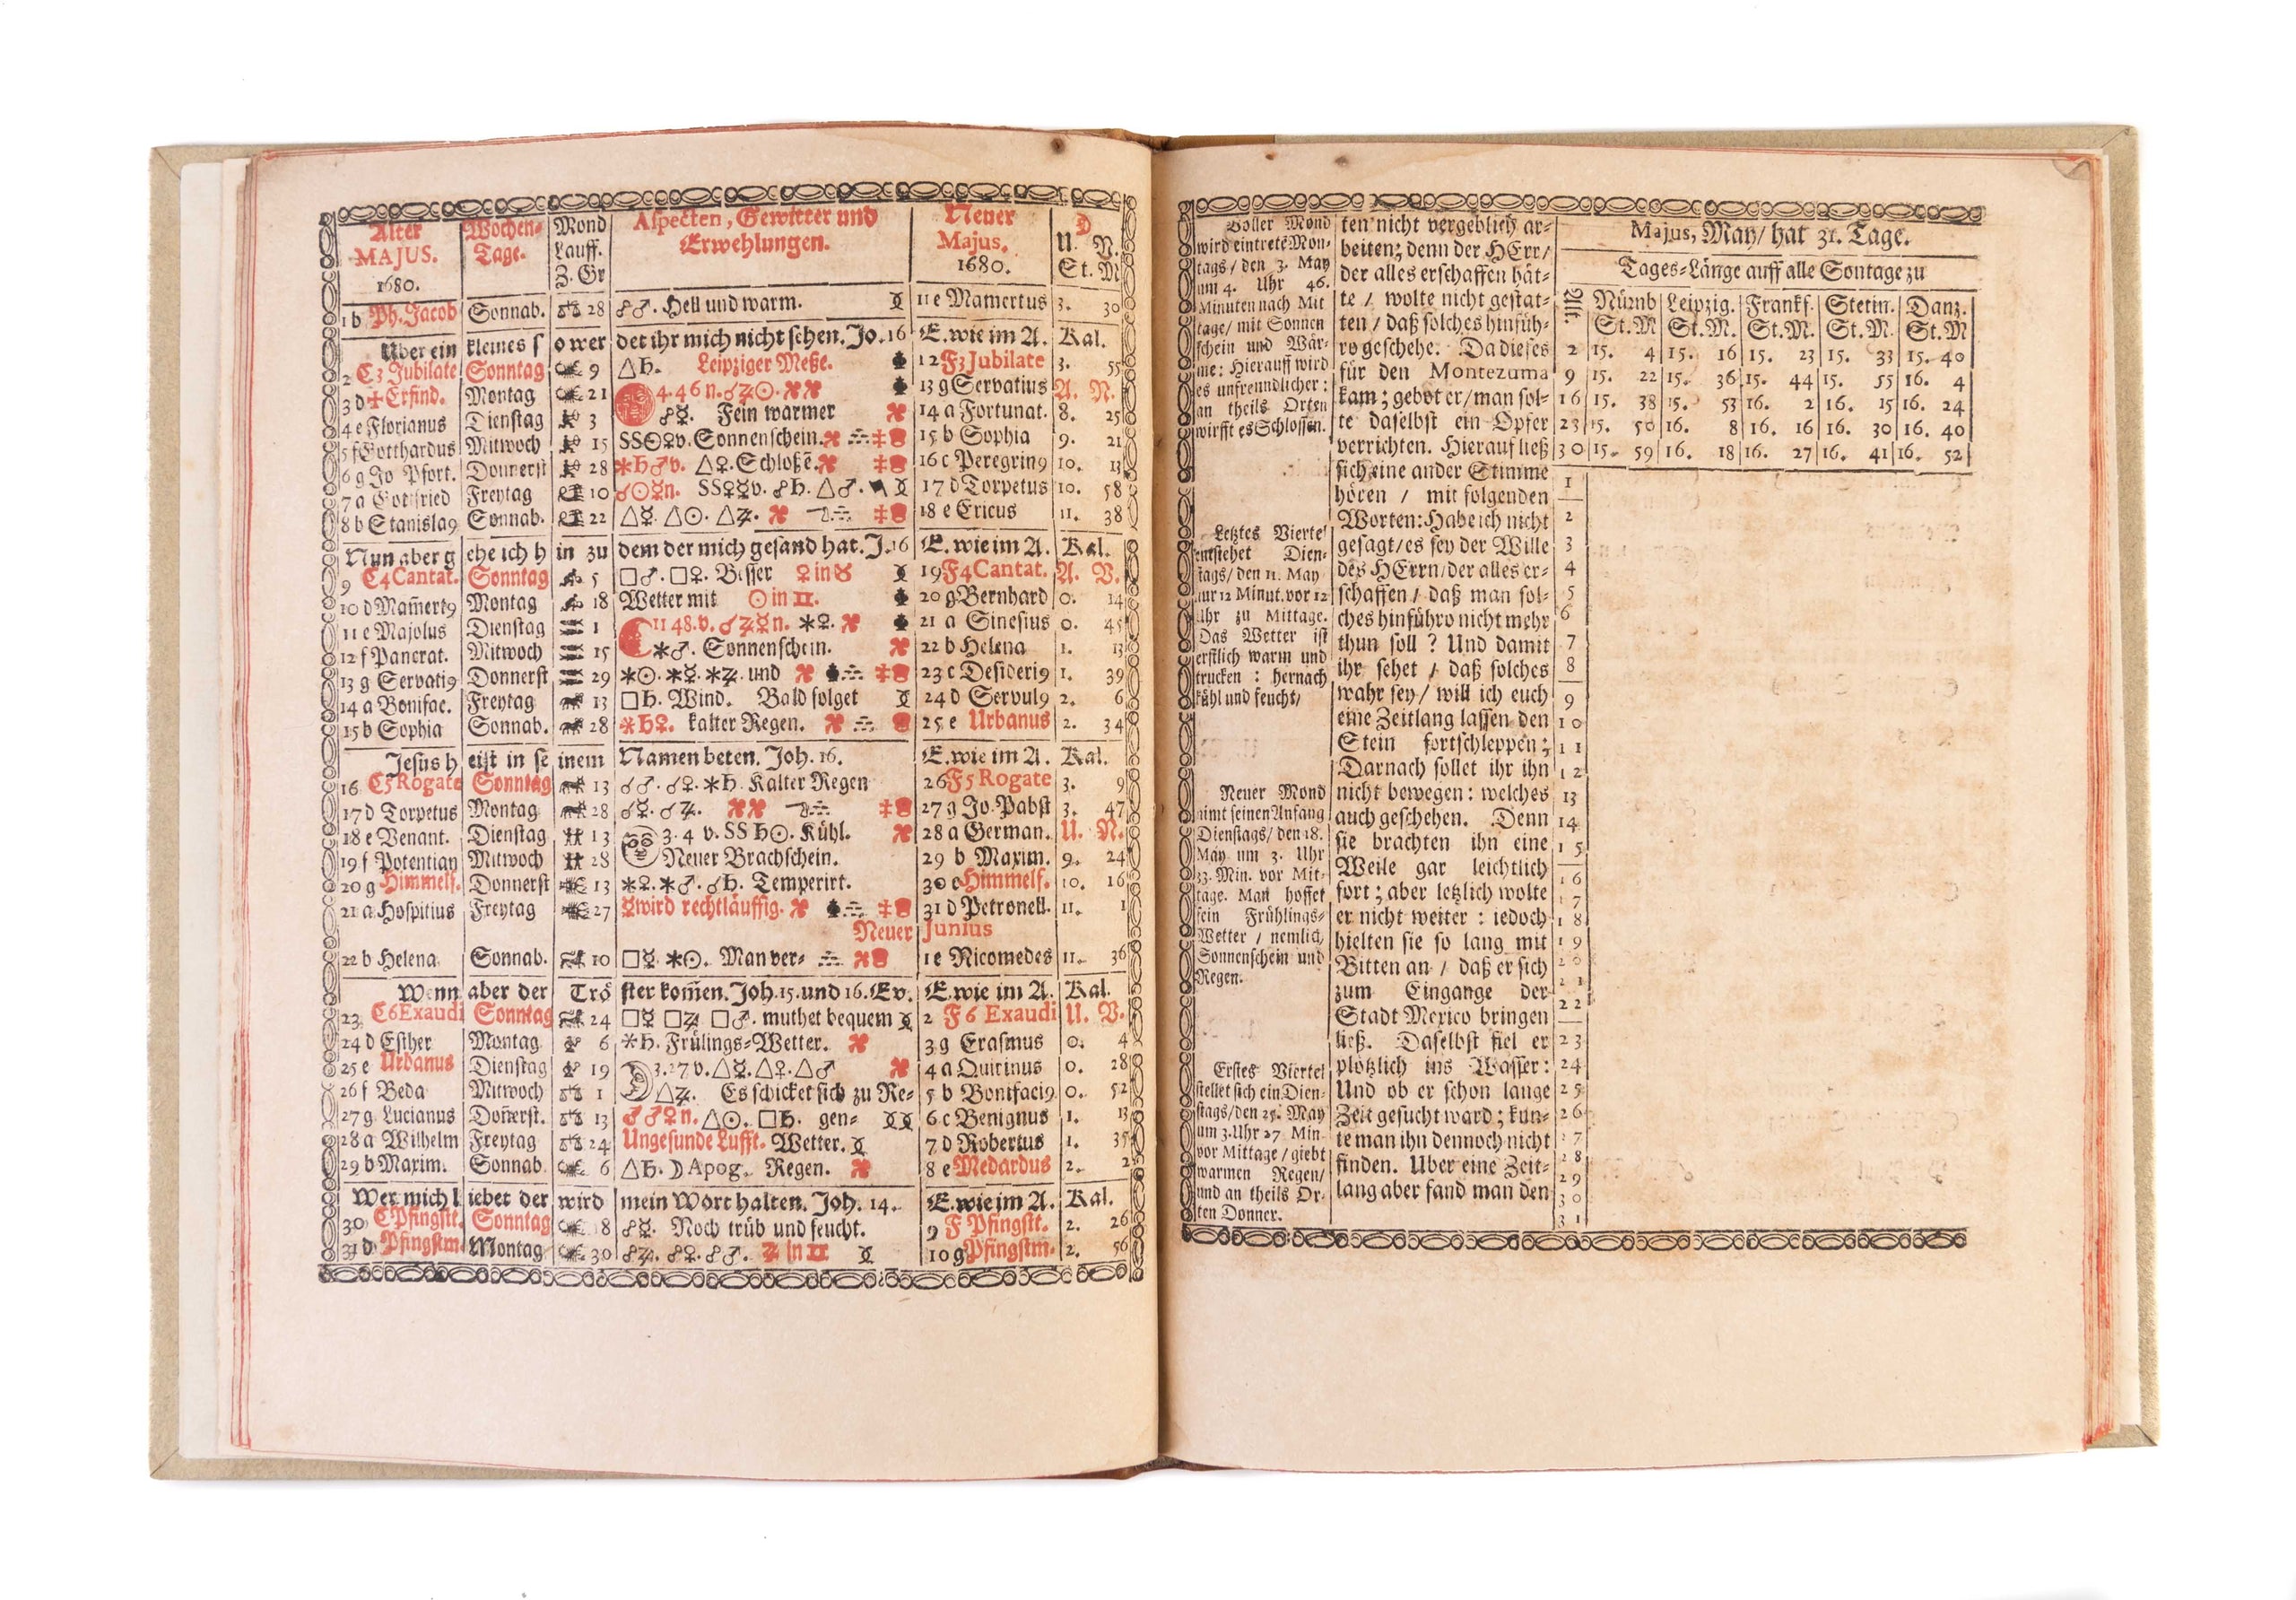 Alter Wochen- Mond Aspecten, Gewitter und Neuer
MAJUS. Tage. Lauff. Erwehlungen. Majus. U. N.
1680. Z. Gr 1680. St. M
1 b Ph. Jacob Sonnab. 28 ☍♂. Hell und warm. 11 e Mamertus 3. 30
Uber ein kleines s o wer det ihr mich nicht sehen. Jo. 16 E. wie im A. Kal.
2 C3 Jubilate Sonntag 9 △♄. Leipziger Meße. 12 F3 Jubilate 3. 55
3 d ✢ Erfind. Montag 21 4. 46 n. ☌♃☉. 13 g Servatius A. N.
4 e Florianus Dienstag 3 ☍☿. Fein warmer 14 a Fortunat. 8. 25
5 f Gotthardus Mitwoch 15 SS☉♀v. Sonnenschein. 15 b Sophia 9. 21
6 g Jo Pfort. Donnerst 28 ⚹♄♂v. △♀. Schloßē. 16 c Peregrin9 10. 13
7 a Gottfried Freytag 10 ☌☉☿n. SS♀☿v. ☍♄. △♂. 17 d Torpetus 10. 58
8 b Stanisla9 Sonnab. 22 △☿. △☉. △♃. 18 e Ericus 11. 38
Nun aber g ehe ich h in zu dem der mich gesand hat. J. 16 E. wie im A. Kal.
9 C4 Cantat. Sonntag 5 □♂. □♀. Bisser ♀ in ♉ 19 F4 Cantat. A. V.
10 d Mam̄ert9 Montag 18 Wetter mit ☉ in ♊. 20 g Bernhard 0. 14
11 e Majolus Dienstag 1 11 48. v. ☌♃☿n. ⚹♀. 21 a Sinesius 0. 45
12 f Pancrat. Mitwoch 15 ⚹♂. Sonnenschein. 22 b Helena 1. 13
13 g Servati9 Donnerst 29 ⚹☉. ⚹☿. ⚹♃. und 23 c Desideri9 1. 39
14 a Bonifac. Freytag 13 □♄. Wind. Bald folget 24 d Servul9 2. 6
15 b Sophia Sonnab. 28 ⚹♄♀. kalter Regen. 25 e Urbanus 2. 34
Jesus h eist in se inem Namen beten. Joh. 16. E. wie im A. Kal.
16 C5 Rogate Sonntag 13 ☌♂. ☌♀. ⚹♄. Kalter Regen 26 F5 Rogate 3. 9
17 d Torpetus Montag 28 ☌☿. ☌♃. 27 g Jo. Pabst 3. 47
18 e Venant. Dienstag 13 3. 4 v. SS ♄☉. Kühl. 28 a German. U. N.
19 f Potentian Mitwoch 28 Neuer Brachschein. 29 b Maxim. 9. 24
20 g Himmelf. Donnerst 13 ⚹♀. ⚹♂. ☌♄. Temperirt. 30 c Himmelf. 10. 16
21 a Hospitius Freytag 27 ☿ wird rechtläuffig. 31 d Petronell. 11. 1
Neuer Junius
22 b Helena Sonnab. 10 □☿. ⚹☉. Man ver- 1 e Nicomedes 11. 36
Wenn aber der Trö ster kom̄en. Joh. 15. und 16. Ev. E. wie im A. Kal.
23 C6 Exaudi Sonntag 24 □☿ □♃ □♂. muthet bequem 2 F6 Exaudi U. V.
24 d Esther Montag 6 ⚹♄. Frülings-Wetter. 3 g Erasmus 0. 4
25 e Urbanus Dienstag 19 3. 27 v. △☿. △♀. △♂ 4 a Quirinus 0. 28
26 f Beda Mitwoch 1 △♃. Es schicket sich zu Re- 5 b Bonifaci9 0. 52
27 g Lucianus Don̄erst. 13 ♂♂♀n. △☉. □♄. gen- 6 c Benignus 1. 13
28 a Wilhelm Freytag 24 Ungesunde Lufft. Wetter. 7 d Robertus 1. 35
29 b Maxim. Sonnab. 6 △♄. ☽ Apog. Regen. 8 e Medardus 2. 2
Wer mich l iebet der wird mein Wort halten. Joh. 14. E. wie im A. Kal.
30 C Pfingstt. Sonntag 18 ☍☿. Noch trüb und feucht. 9 F Pfingstt. 2. 26
31 d Pfingstm. Montag 30 ☍♃. ☍♀. ☍♂. ♃ in ♊ 10 g Pfingstm. 2. 56
Voller Mond
wird eintretē Mon-
tags / den 3. May
um 4. Uhr 46.
Minuten nach Mit
tage / mit Sonnen
schein und Wär-
me: Hierauff wird
es unfreundlicher:
an theils Orten
wirfft es Schlossen.
Letztes Viertel
entstehet Dien-
stags / den 11. May
nur 12 Minut. vor 12
Uhr zu Mittage.
Das Wetter ist
erstlich warm und
trucken: hernach
kühl und feucht/
Neuer Mond
nimt seinen Anfang
Dienstags / den 18.
May um 3. Uhr
33. Min. vor Mit-
tage. Man hoffet
fein Frühlings-
Wetter / nemlich,
Sonnenschein und
Regen.
Erstes Viertel
stellet sich ein Dien-
stags / den 25. May
um 3. Uhr 27 Min-
vor Mittage / giebt
warmen Regen/
und an theils Or-
ten Donner.
ten nicht vergeblich ar-
beiten; denn der HErr/
der alles erschaffen hät-
te / wolte nicht gestat-
ten / daß solches hinfüh-
ro geschehe. Da dieses
für den Montezuma
kam; gebot er / man sol-
te daselbst ein Opfer
verrichten. Hierauf ließ
sich eine ander Stimme
hören / mit folgenden
Worten: Habe ich nicht
gesagt / es sey der Wille
des HErrn / der alles er-
schaffen / daß man sol-
ches hinführo nicht mehr
thun soll? Und damit
ihr sehet / daß solches
wahr sey / will ich euch
eine Zeitlang lassen den
Stein fortschleppen;
Darnach sollet ihr ihn
nicht bewegen: welches
auch geschehen. Denn
sie brachten ihn eine
Weile gar leichtlich
fort; aber letzlich wolte
er nicht weiter: iedoch
hielten sie so lang mit
Bitten an / daß er sich
zum Eingange der
Stadt Mexico bringen
ließ. Daselbst fiel er
plötzlich ins Wasser:
Und ob er schon lange
Zeit gesucht ward; kun-
te man ihn dennoch nicht
finden. Uber eine Zeit-
lang aber fand man den
Majus, May / hat 31. Tage.
Tages-Länge auff alle Sontage zu
Nürnb Leipzig. Frankf. Stetin. Danz.
St. M St. M. St. M. St. M. St. M
2 15. 4 15. 16 15. 23 15. 33 15. 40
9 15. 22 15. 36 15. 44 15. 55 16. 4
16 15. 38 15. 53 16. 2 16. 15 16. 24
23 15. 50 16. 8 16. 16 16. 30 16. 40
30 15. 59 16. 18 16. 27 16. 41 16. 52
1
2
3
4
5
6
7
8
9
10
11
12
13
14
15
16
17
18
19
20
21
22
23
24
25
26
27
28
29
30
31